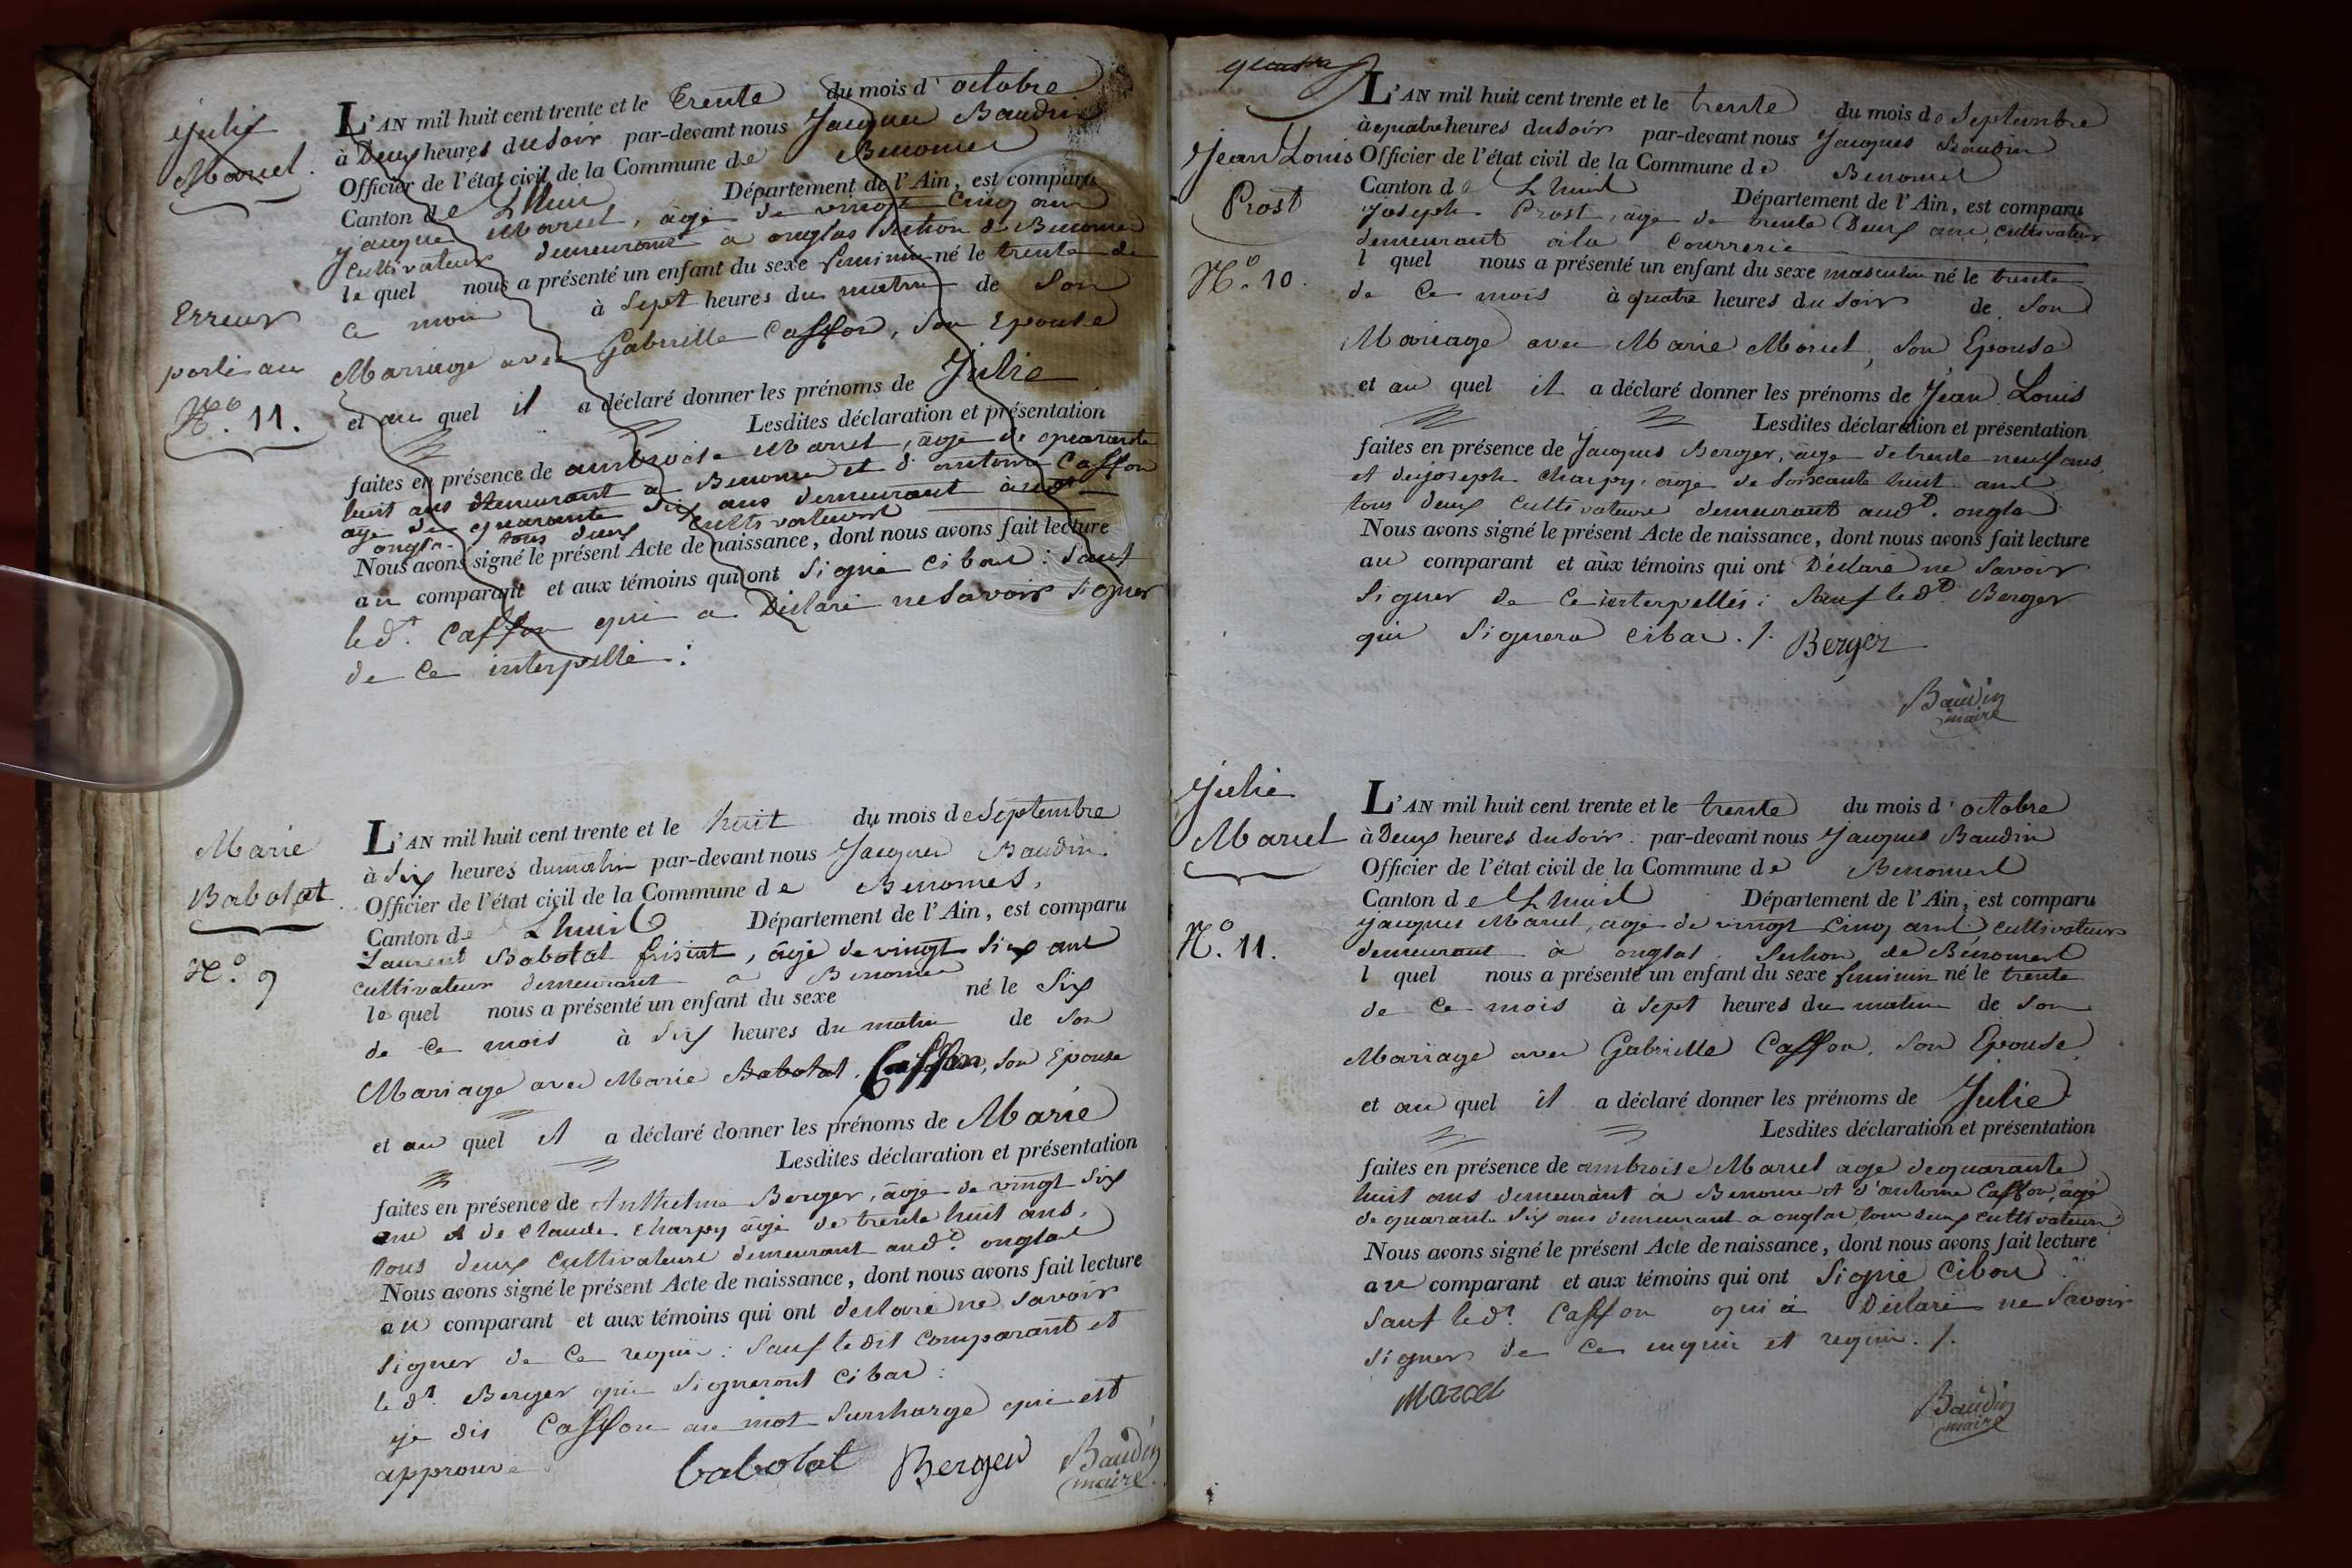 Julie
Marcel.
Erreur
portée au
N.° 11.
L'AN mil huit cent trente et le trente du mois d'octobre
à Deux heures du soir par-devant nous Jacques Baudin
Officier de l'état civil de la Commune de Benonces
Canton de Lhuis Département de l'Ain, est comparu
jacques Marcel, âgé de vingt cinq ans
cultivateur demeurant à onglas section de Benonces
lequel nous a présenté un enfant du sexe feminin né le trente de
ce mois à sept heures du matin de son
Mariage avec Gabrielle Caffon, son Epouse
et au quel il a déclaré donner les prénoms de Julie
Lesdites déclaration et présentation
faites en présence de ambroise Marcel, âgé de quarante
huit ans demeurant à Benonces et d'antoine Caffon
âgé de quarante six ans demeurant aud.t
onglas tous deux cultivateurs
Nous avons signé le présent Acte de naissance, dont nous avons fait lecture
au comparant et aux témoins qui ont signé cibas : sauf
led.t Caffon qui a Déclaré ne savoir signer
de ce interpellé :
Marie
Babolat
N.° 9
L'AN mil huit cent trente et le huit du mois de Septembre
à six heures du matin par-devant nous Jacques Baudin
Officier de l'état civil de la Commune de Benonces,
Canton de Lhuis Département de l'Ain, est comparu
Laurent Babolat , âgé de vingt six ans
cultivateur demeurant à Benonces
lequel nous a présenté un enfant du sexe né le six
de ce mois à six heures du matin de son
Mariage avec Marie Babolat. Caffon, son Epouse
et au quel il a déclaré donner les prénoms de Marie
Lesdites déclaration et présentation
faites en présence de Anthelme Berger, âgé de vingt six
ans et de Claude Charpy âgé de trente huit ans,
tous deux cultivateurs demeurant aud.t onglas
Nous avons signé le présent Acte de naissance, dont nous avons fait lecture
au comparant et aux témoins qui ont declaré ne savoir
signer de ce requis : sauf le dit comparant et
le d.t Berger qui signeront cibas :
je dis Caffon au mot surchargé qui est
approuvé
babolat Berger Baudin
maire
Jean Louis
Prost
N.° 10.
L'AN mil huit cent trente et le trente du mois de Septembre
à quatre heures du soir par-devant nous Jacques Baudin
Officier de l'état civil de la Commune de Benonces
Canton de Lhuis Département de l'Ain, est comparu
Joseph Prost, âgé de trente Deux ans, cultivateur
demeurant à la Courrerie
l quel nous a présenté un enfant du sexe masculin né le trente
de ce mois à quatre heures du soir de son
Mariage avec Marie Marcel, son Epouse
et au quel il a déclaré donner les prénoms de Jean Louis
Lesdites déclaration et présentation
faites en présence de Jacques Berger, âgé de trente neuf ans,
et de joseph Charpy, âgé de soixante huit ans
tous deux cultivateurs demeurant aud.t onglas
Nous avons signé le présent Acte de naissance, dont nous avons fait lecture
au comparant et aux témoins qui ont Déclaré ne savoir
signer de ce interpellés : Sauf led.t Berger
qui signera cibas ./. Berger
Baudin
maire
Julie
Marcel
N.° 11.
L'AN mil huit cent trente et le trente du mois d'octobre
à Deux heures du soir par-devant nous Jacques Baudin
Officier de l'état civil de la Commune de Benonces
Canton de Lhuis Département de l'Ain, est comparu
jacques Marcel, âgé de vingt cinq ans cultivateur
demeurant à onglas Section de Benonces
l quel nous a présenté un enfant du sexe feminin né le trente
de ce mois à sept heures du matin de son
Mariage avec Gabrielle Caffon, son Epouse
et au quel il a déclaré donner les prénoms de Julie
Lesdites déclaration et présentation
faites en présence de ambroise Marcel âgé de quarante
huit ans demeurant à Benonces et d'antoine Caffon, âgé
de quarante six ans demeurant à onglas, tous deux cultivateurs
Nous avons signé le présent Acte de naissance, dont nous avons fait lecture
au comparant et aux témoins qui ont Signé cibas
sauf led.t Caffon qui à Déclaré ne savoir
signer de ce enquis et requis ./.
Marcel
Baudin
maire